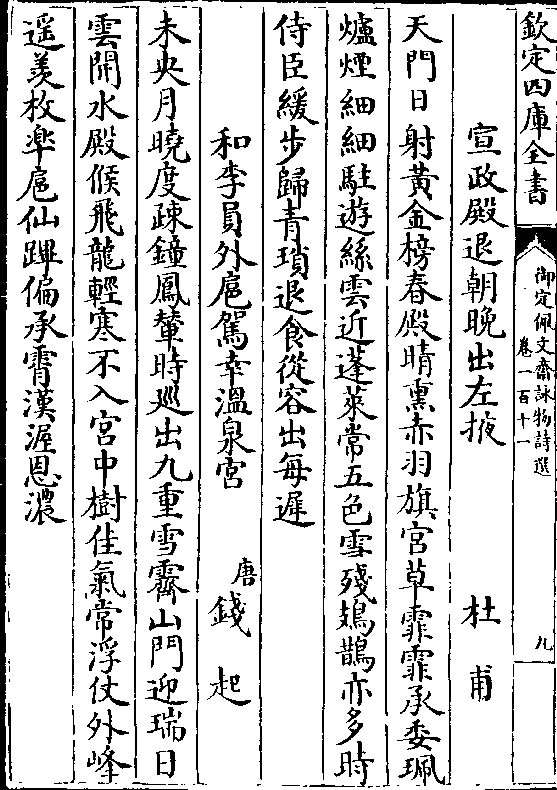 欽定四庫全書
御定佩文齋詠物詩選
卷一百十一
九
宣政殿退朝晚出左掖 杜甫
天門日射黃金榜春殿晴熏赤羽旗宮草霏霏承委珮
爐煙細細駐遊絲雲近蓬萊常五色雪殘鳷鵲亦多時
侍臣緩步歸青瑣退食從容出每遲
和李員外扈駕幸溫泉宮 唐錢起
未央月曉度疎鐘鳳輦時巡出九重雪霽山門迎瑞日
雲開水殿候飛龍輕寒不入宮中樹佳氣常浮仗外峰
遥羡枚臯扈仙蹕偏承霄漢渥恩濃